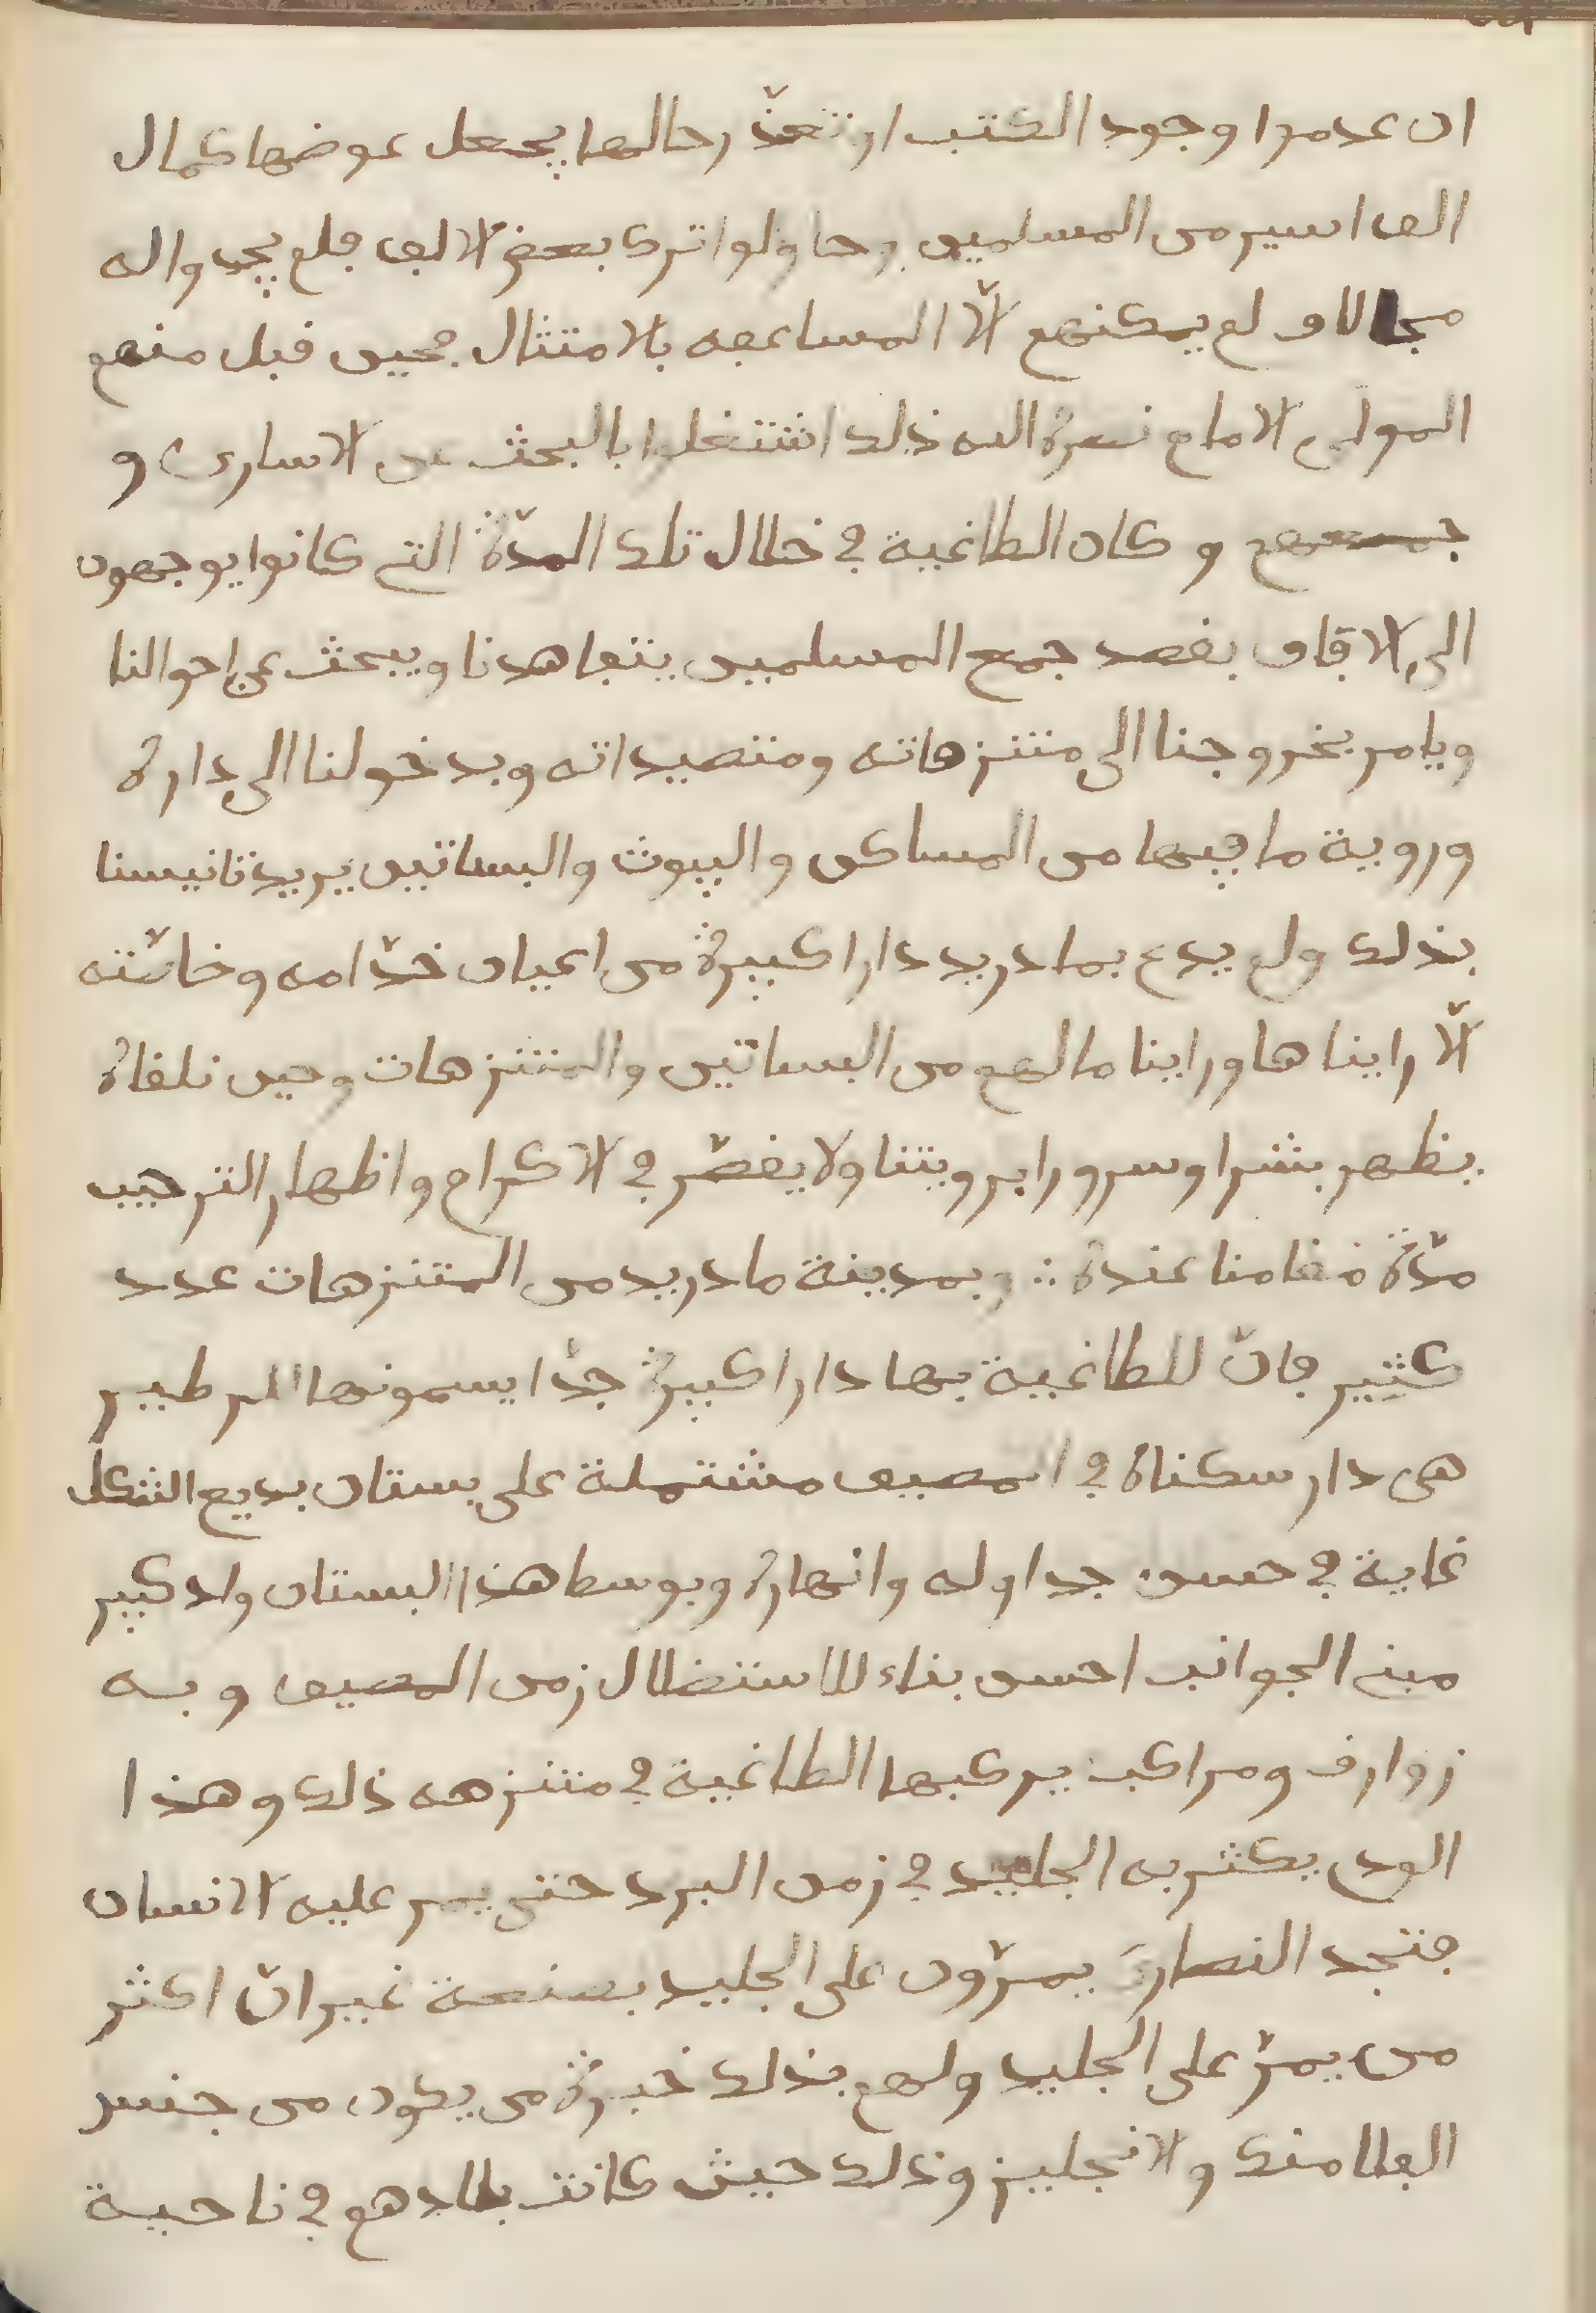 ان عدموا وجود الكتب او تعذّر حالها يجعل عوضها كمال
الف اسير من المسلمين وحاولوا ترك بعض الالف فلم يجدوا له
مجالا و لم يمكنهم الّا المساعفه بالامتثال فحين قبل منهم
المولى الامام نصره الله ذلك اشتغلوا بالبحث عن الاسارى و
جمعهم و كان الطاغية في خلال تلك المدّة التي كانوا يوجهون
الى الافاق بقصد جمع المسلمين يتعاهدنا ويبحث عن احوالنا
ويامر بخروجنا الى متنزهاته ومتصيداته وبدخولنا الى داره
وروية ما فيها من المساكن والبيوت والبساتين يريد تانيسنا
بذلك ولم يدع بمادريد دارا كبيرة من اعيان خدّامه وخاصّته
الّا رايناها وراينا ما لهم من البساتين والمتنزهات وحين نلقاه
يظهر بشرا وسرورا برويتنا ولا يقصّر في الاكرام واظهار الترحيب
مدّة مقامنا عنده ∴ وبمدينة مادريد من المتنزهات عدد
كثير فانّ للطاغية بها دارا كبيرة جدّا يسمونها المرطيير
هي دار سكناه في المصيف مشتملة على بستان بديع الشكل
غاية في حسن جداوله وانهاره وبوسط هذا البستان واد كبير
مبني الجوانب احسن بناء للاستضلال زمن المصيف و به
زوارق ومراكب يركبها الطاغية في متنزهه ذلك وهذا
الودي يكثر به الجليد في زمن البرد حتى يمر عليه الانسان
فتجد النصارى يمرّون على الجليد بصنعة غير انّ اكثر
من يمرّ على الجليد ولهم بذلك خبرة من يكون من جنس
الفلامنك والانجليز وذلك حيث كانت بلادهم في ناحية